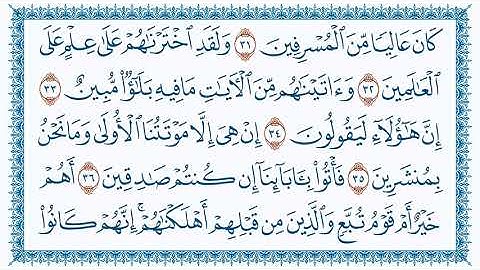 كَانَ عَالِيًا مِّنَ ٱلْمُسْرِفِينَ ٣١ وَلَقَدِ ٱخْتَرْنَـٰهُمْ عَلَىٰ عِلْمٍ عَلَى
ٱلْعَـٰلَمِينَ ٣٢ وَءَاتَيْنَـٰهُم مِّنَ ٱلْـَٔايَـٰتِ مَا فِيهِ بَلَـٰٓؤٌا۟ مُّبِينٌ ٣٣
إِنَّ هَـٰٓؤُلَآءِ لَيَقُولُونَ ٣٤ إِنْ هِىَ إِلَّا مَوْتَتُنَا ٱلْأُولَىٰ وَمَا نَحْنُ
بِمُنشَرِينَ ٣٥ فَأْتُوا۟ بِـَٔابَآئِنَآ إِن كُنتُمْ صَـٰدِقِينَ ٣٦ أَهُمْ
خَيْرٌ أَمْ قَوْمُ تُبَّعٍ وَٱلَّذِينَ مِن قَبْلِهِمْ أَهْلَكْنَـٰهُمْ ۖ إِنَّهُمْ كَانُوا۟